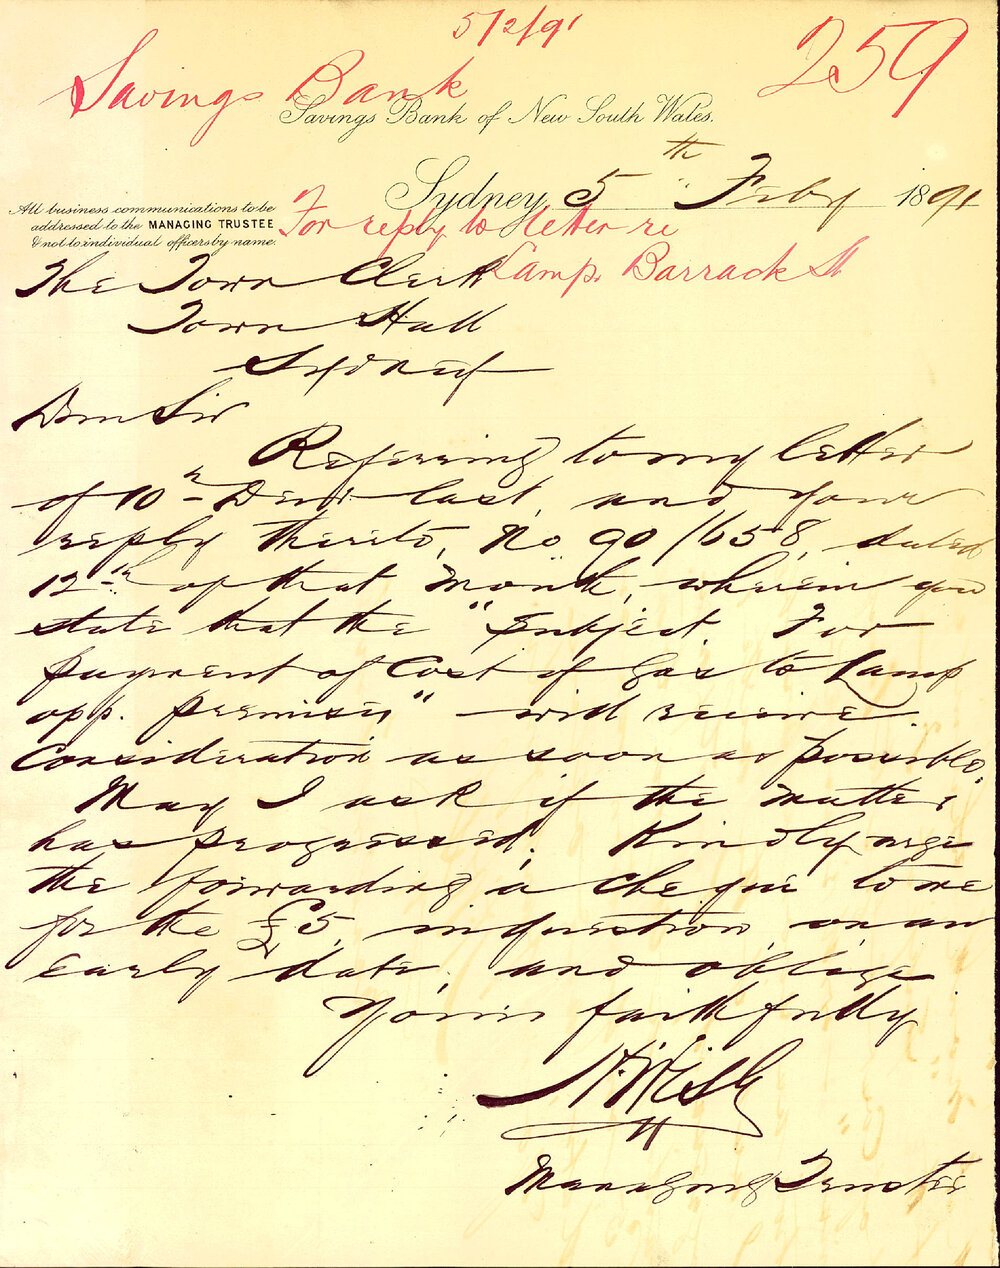 5/2/91
259
Savings Bank
Savings Bank of New South Wales.
Sydney 5th Feby 1891
All business communications to be
addressed to the MANAGING TRUSTEE
& not to individual officers by name.
For reply to letter re
Lamp. Barrack St
The Town Clerk
Town Hall
Sydney
Dear Sir
Referring to my letter
of 10th Decr last, and your
reply thereto, No 90/1658, dated
12th of that month, wherein you
state that the "Subject. For
payment of Cost of gas to Lamp
opp. premises" will receive
Consideration as soon as possible.
May I ask if the matter
has progressed. Kindly urge
the forwarding a cheque to me
for the £5, in question, on an
early date, and oblige
Yours faithfully
Managing Trustee